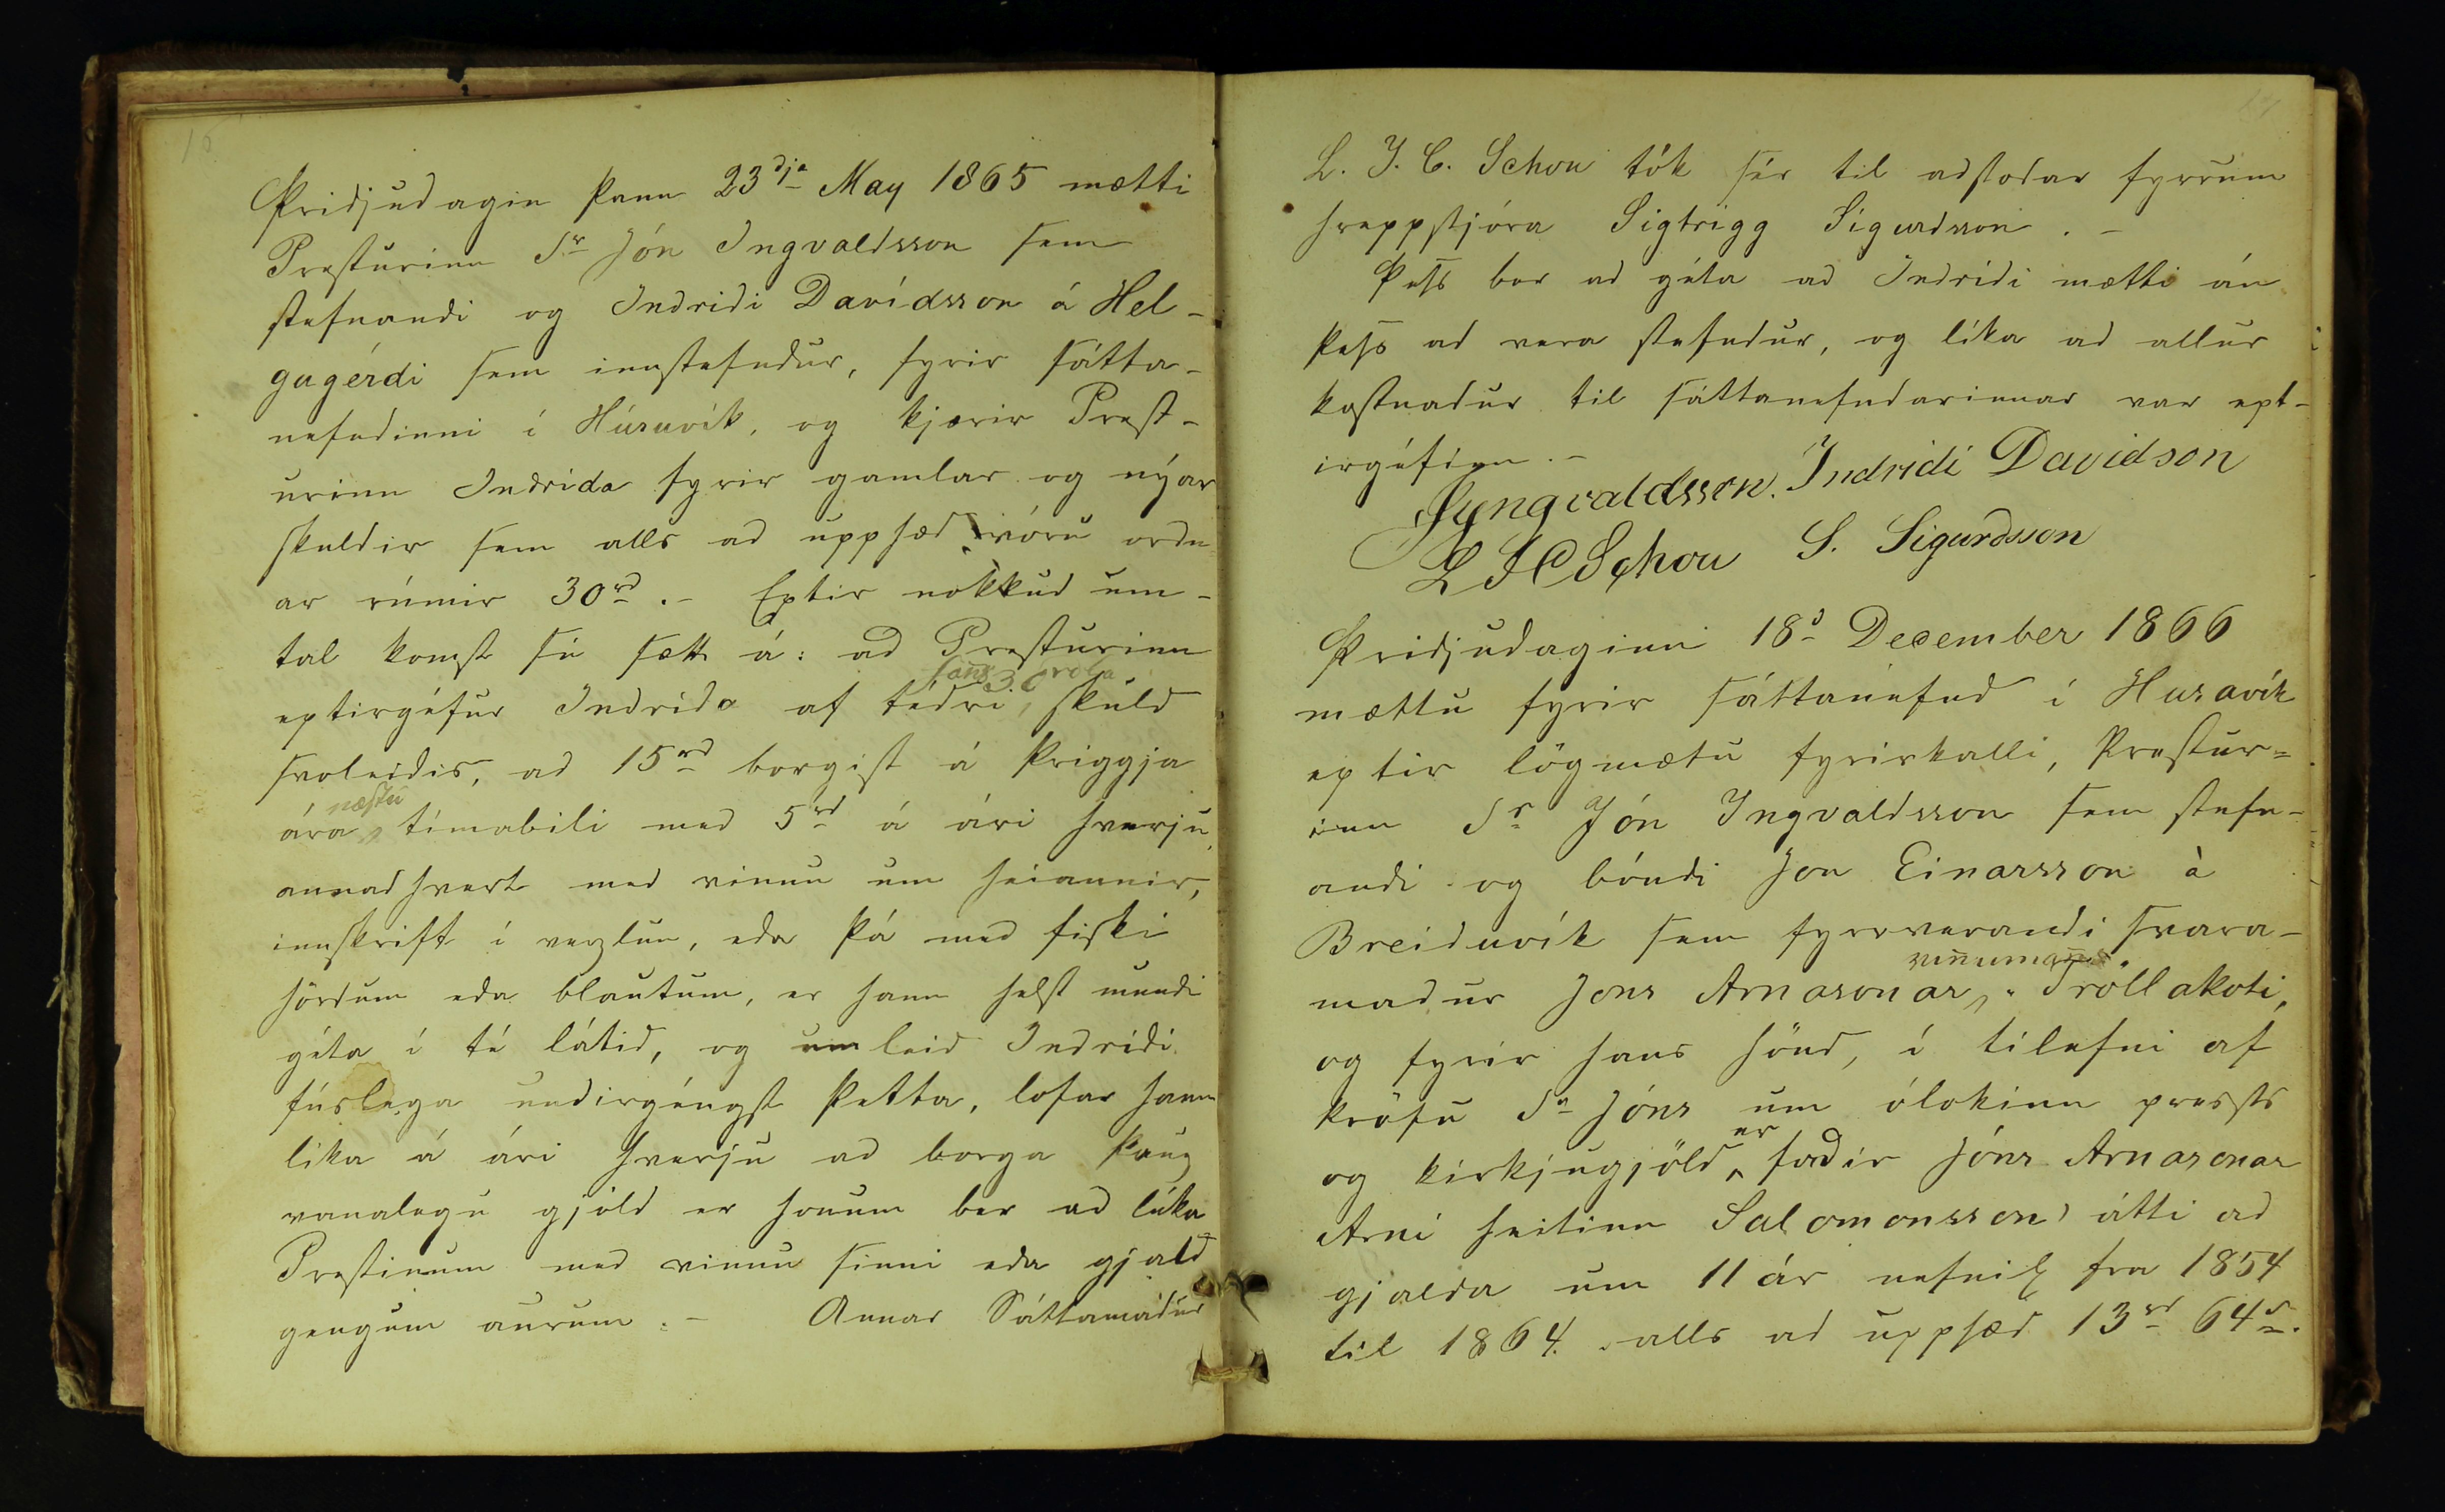 Þridjudagin þann 23dja May 1865 mætti
Presturinn Sr Jón Ingvaldsson sem
stefnandi og Indridi Davídsson á Hel-
gugérdi sem innstefndur, fyrir sátta-
nefndinni í Húsavík, og kjærir Prest-
urinn Indrida fyrir gamlar og nýar
skuldir sem alls ad upphæd vóru ordn-
ar rúmir 30rd .- Eptir nokkud um-
tal komst sú sætt á: ad Presturinn
eptirgéfur Indrida af tédri, skuld
svoleidis, ad 15rd borgist á þriggja
ára næstu tímabili med 5rd á ári hverju,
annadhvert med vinnu um heiannir,
innskrift í verzlun, eda þá med fiski
hördum eda blautum, er hann helst mundi
géta í té látid, og um leid Indridi
fúslega undirgéngst þetta, lofar hann
líka á ári hverju ad borga þaug
vanalegu gjöld er honum ber ad lúka
Prestinum med vinnu sinni eda gjald-
gengum aurum .- Annar Sáttamadur
L. J. C. Schou tók sér til adstodar fyrrum
hreppstjóra Sigtrigg Sigurdsson . -
Þess ber ad géta ad Indridi mætti án
þess ad vera stefndur, og líka ad allur
kostnadur til sáttanefndarinnar var ept-
irgéfinn .-
JYngvaldsson. Indridi Davidson
L J C Schou S. Sigurdsson
Þridjudaginn 18d December 1866
mættu fyrir sáttanefnd í Husavík
eptir lögmætu fyrirkalli, Prestur=
inn Sr Jón Ingvaldsson sem stefn-
andi og bóndi Jon Einarsson à
Breiduvík sem fyrrverandi svara-
vinnumanns
madur Jons Arnasonar, Tröllakoti,
og fyrir hans hönd, í tilefni af
kröfu Sr Jóns um ólokinn prests
og kirkjugjöld er fadir Jóns Arnasonar
Arni heitinn Salomonsson átti ad
gjalda um 11 ár nefnil fra 1854
til 1864. alls ad upphæd 13rd 64s.